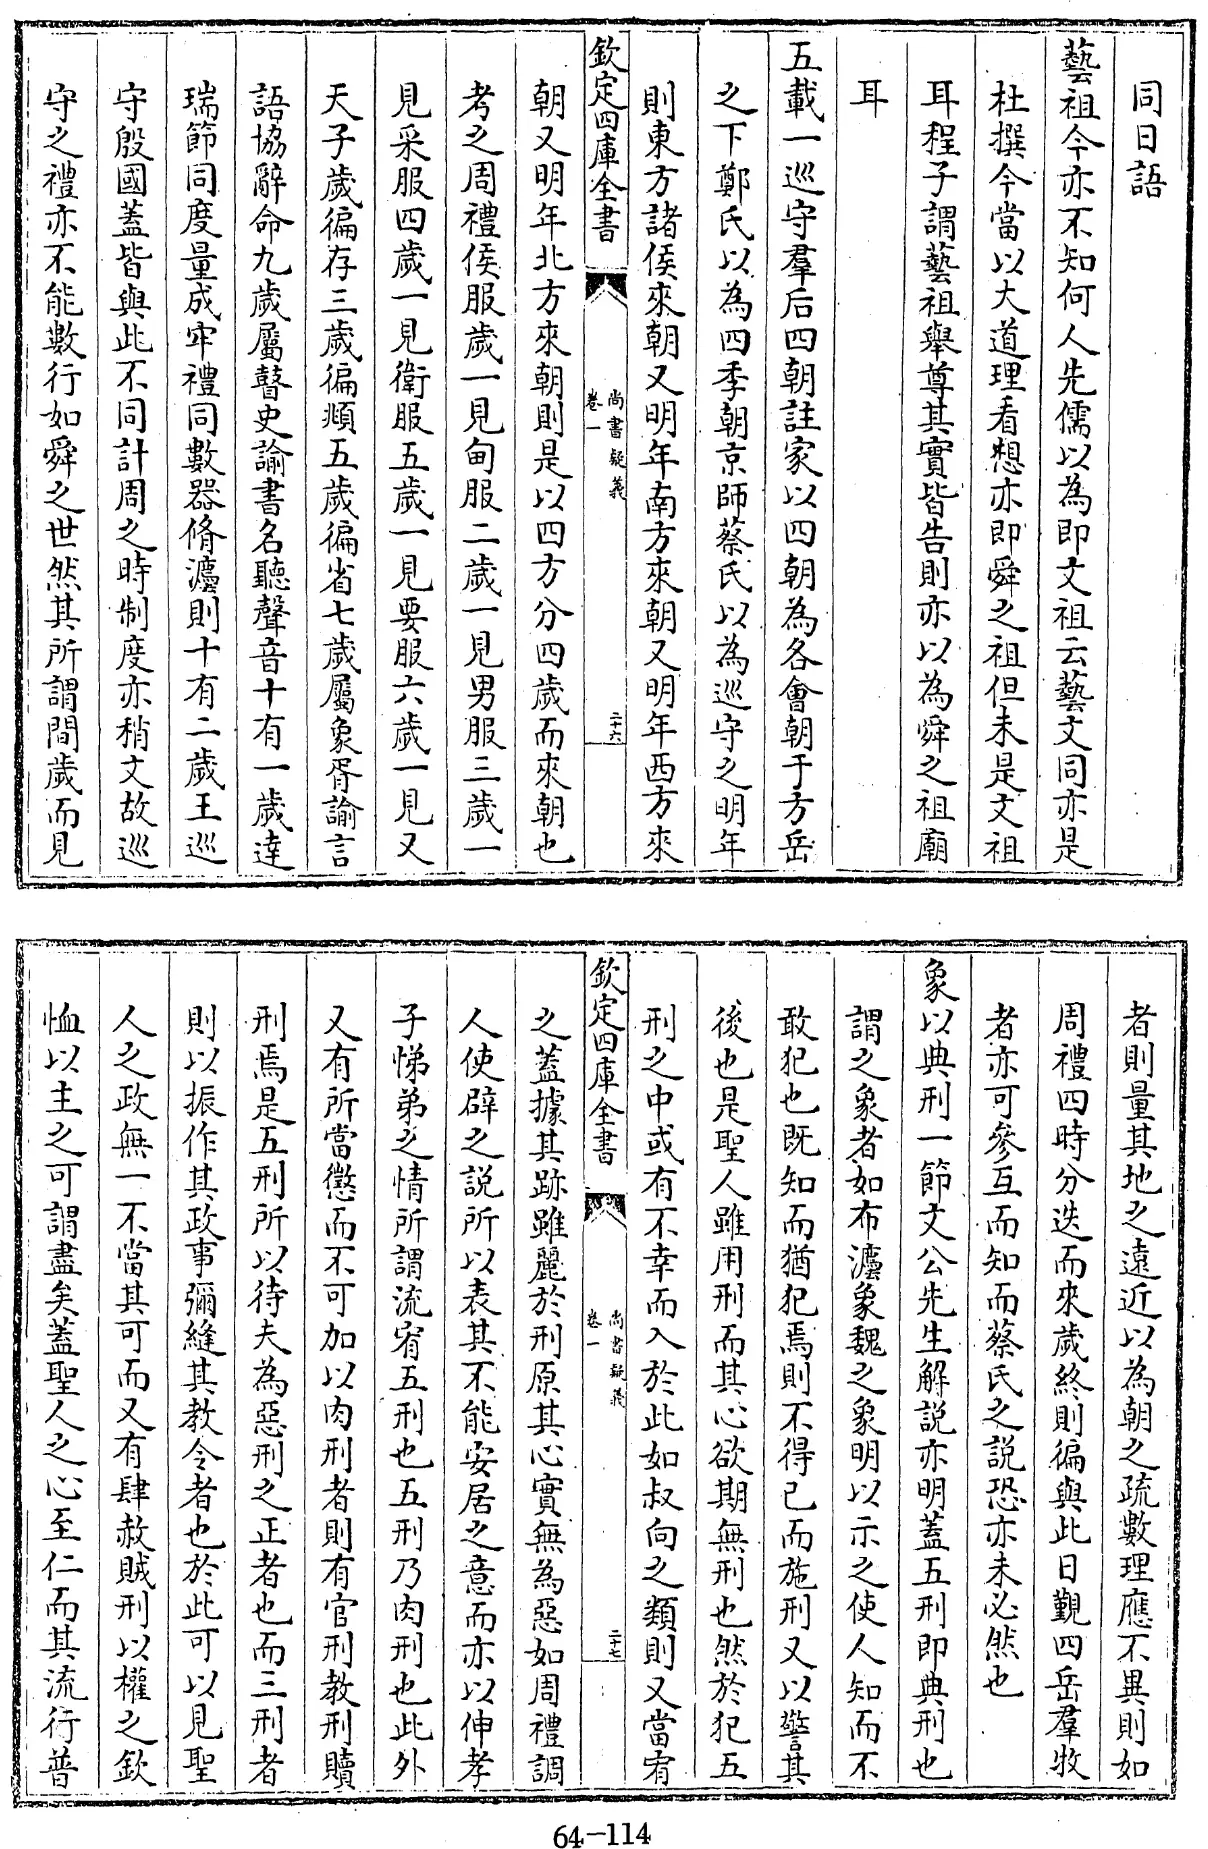 同日語
藝祖今亦不知何人先儒以為即文祖云藝文同亦是
杜撰今當以大道理看想亦即舜之祖但未是文祖
耳程子謂藝祖舉尊其實皆告則亦以為舜之祖廟
耳
五載一巡守羣后四朝註家以四朝為各會朝于方岳
之下鄭氏以為四季朝京師蔡氏以為巡守之明年
則東方諸侯來朝又明年南方來朝又明年西方來
欽定四庫全書
尚書疑義
卷一
二十六
朝又明年北方來朝則是以四方分四歲而來朝也
考之周禮侯服歲一見甸服二歲一見男服三歲一
見采服四歲一見衛服五歲一見要服六歲一見又
天子歲徧存三歲徧頫五歲徧省七歲屬象胥諭言
語協辭命九歲屬瞽史諭書名聽聲音十有一歲達
瑞節同度量成牢禮同數器脩灋則十有二歲王巡
守殷國蓋皆與此不同計周之時制度亦稍文故巡
守之禮亦不能數行如舜之世然其所謂間歲而見
者則量其地之遠近以為朝之疏數理應不異則如
周禮四時分迭而來歲終則徧與此日覲四岳羣牧
者亦可參互而知而蔡氏之說恐亦未必然也
象以典刑一節文公先生解説亦明蓋五刑即典刑也
謂之象者如布灋象魏之象明以示之使人知而不
敢犯也既知而猶犯焉則不得已而施刑又以警其
後也是聖人雖用刑而其心欲期無刑也然於犯五
刑之中或有不幸而入於此如叔向之類則又當宥
欽定四庫全書
尚書疑義
卷一
二十七
之蓋據其跡雖麗於刑原其心實無為惡如周禮調
人使辟之説所以表其不能安居之意而亦以伸孝
子悌弟之情所謂流宥五刑也五刑乃肉刑也此外
又有所當懲而不可加以肉刑者則有官刑教刑贖
刑焉是五刑所以待夫為惡刑之正者也而三刑者
則以振作其政事彌縫其教令者也於此可以見聖
人之政無一不當其可而又有肆赦賊刑以權之欽
恤以主之可謂盡矣蓋聖人之心至仁而其流行普
64-114